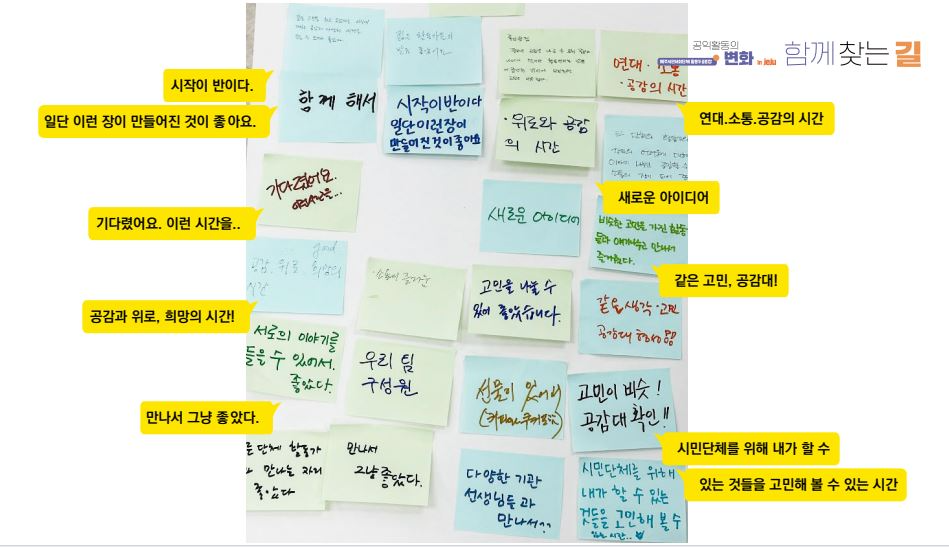 공익활동의
변화 in jeju
함께 찾는 길
시작이 반이다.
일단 이런 장이 만들어진 것이 좋아요.
기다렸어요. 이런 시간을..
공감과 위로, 희망의 시간!
만나서 그냥 좋았다.
연대.소통.공감의 시간
새로운 아이디어
같은 고민, 공감대!
시민단체를 위해 내가 할 수
있는 것들을 고민해 볼 수 있는 시간
함께 해서
시작이반이다
일단이런장이
만들어진것이좋아요
·위로와 공감
의 시간
연대·소통
·공감의 시간
기다렸어요.
새로운 아이디어
비슷한 고민을 가진 활동
들과 얘기나누고 만나서
즐거웠다.
good
공감. 위로. 희망의
시간
·소통이 즐거운
고민을 나눌 수
있어 좋았습니다.
같은생각·고민
공감대 형성
서로의 이야기를
들을 수 있어서.
좋았다.
우리 팀
구성원
선물이 있어서
고민이 비슷!
공감대 확인!!
단체 활동가
만나는 자리
좋았다
만나서
그냥좋았다.
다양한 기관
선생님들과
만나서??
시민단체를 위해
내가 할 수 있는
것들을 고민해 볼 수
있는 시간..